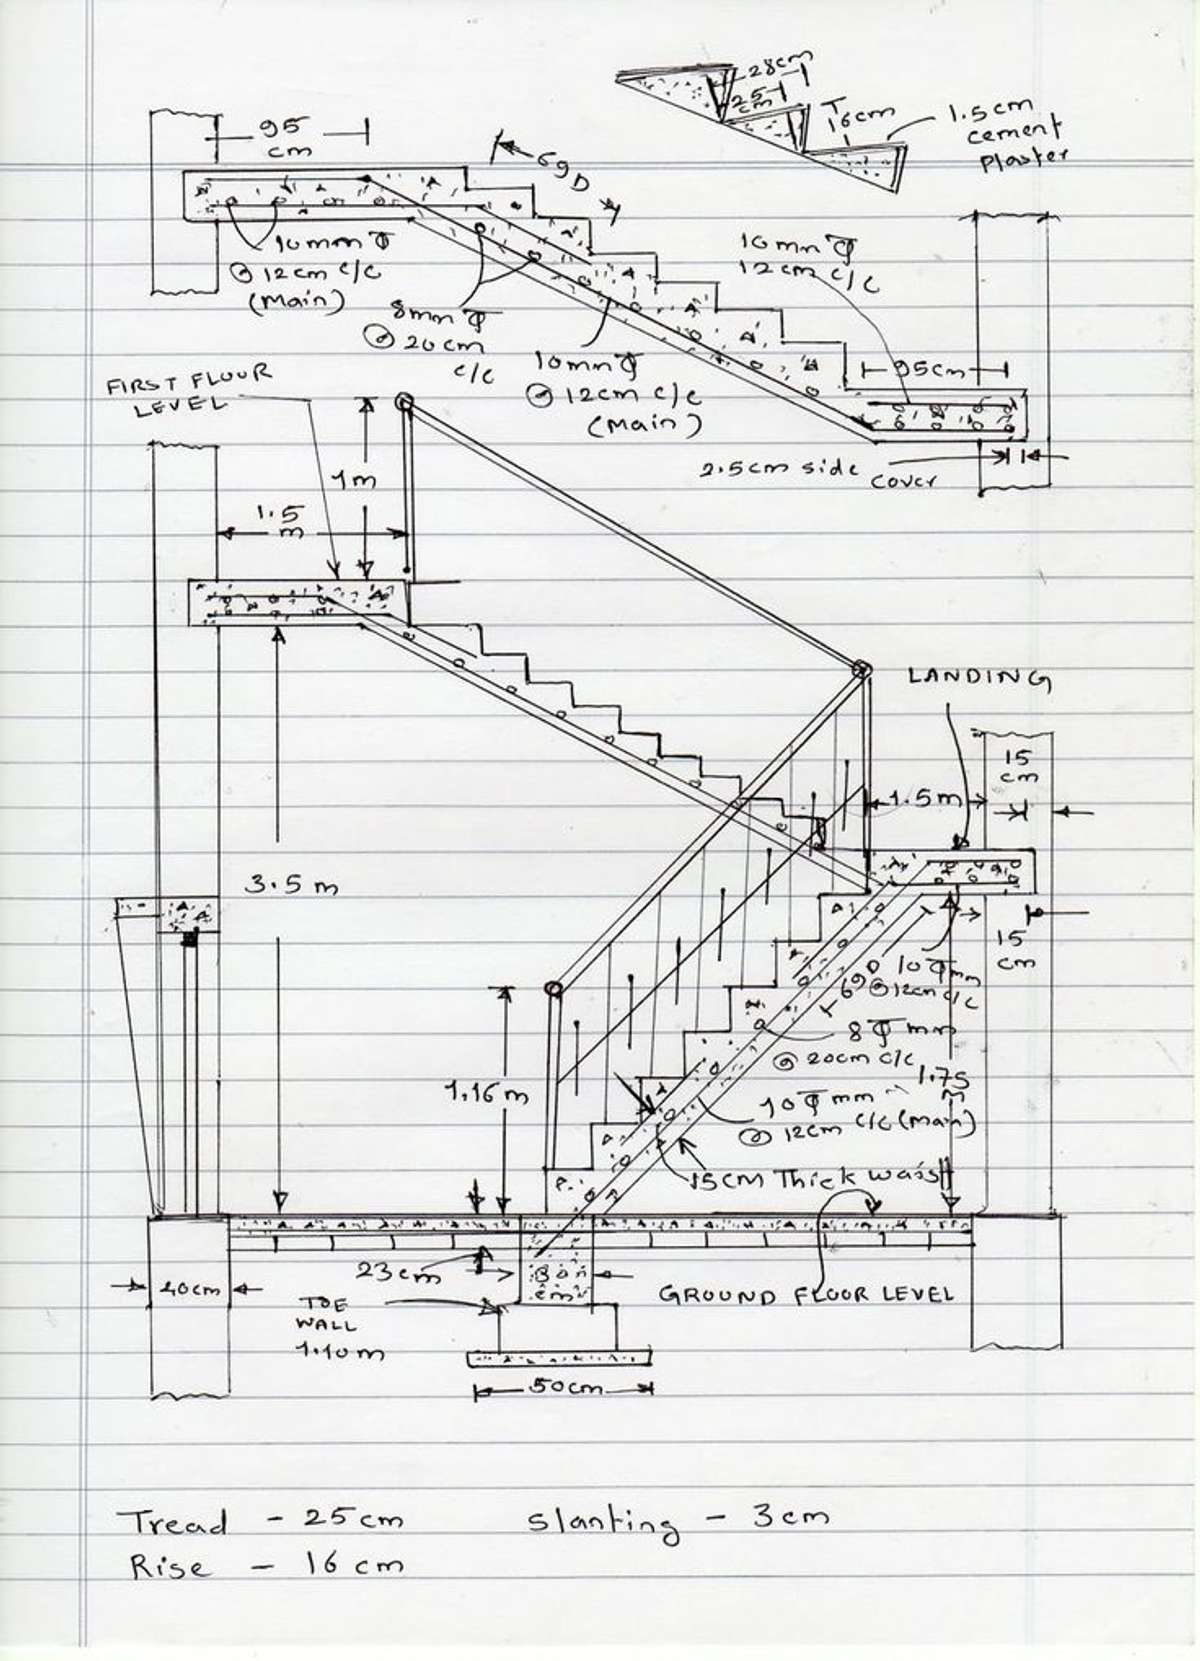 28cm
25
cm
16cm
1.5cm
cement
plaster
95
cm
69D
10mm Φ
@ 12cm c/c
(Main)
8mm Φ
@ 20cm
c/c
10mm Φ
@ 12cm c/c
(Main)
10mm Φ
12cm c/c
95cm
2.5cm side
cover
FIRST FLOOR
LEVEL
1m
1.5
m
LANDING
15
cm
1.5m
3.5 m
15
cm
69D
10 Φ mm
@ 12cm c/c
8 Φ mm
@ 20cm c/c
1.75
m
1.16 m
10 Φ mm
@ 12cm c/c (main)
15cm Thick waist
23cm
40cm
30
cm
GROUND FLOOR LEVEL
TOE
WALL
1.10m
50cm
Tread - 25cm
slanting - 3cm
Rise - 16 cm